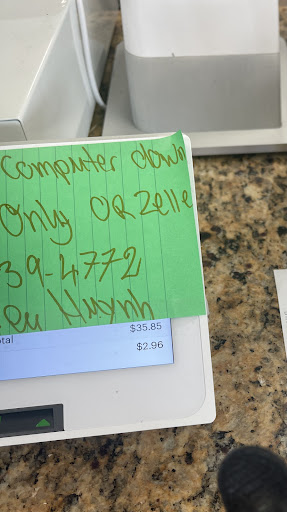 Computer down
Only OR Zelle
39-4772
Huynh
$35.85
$2.96